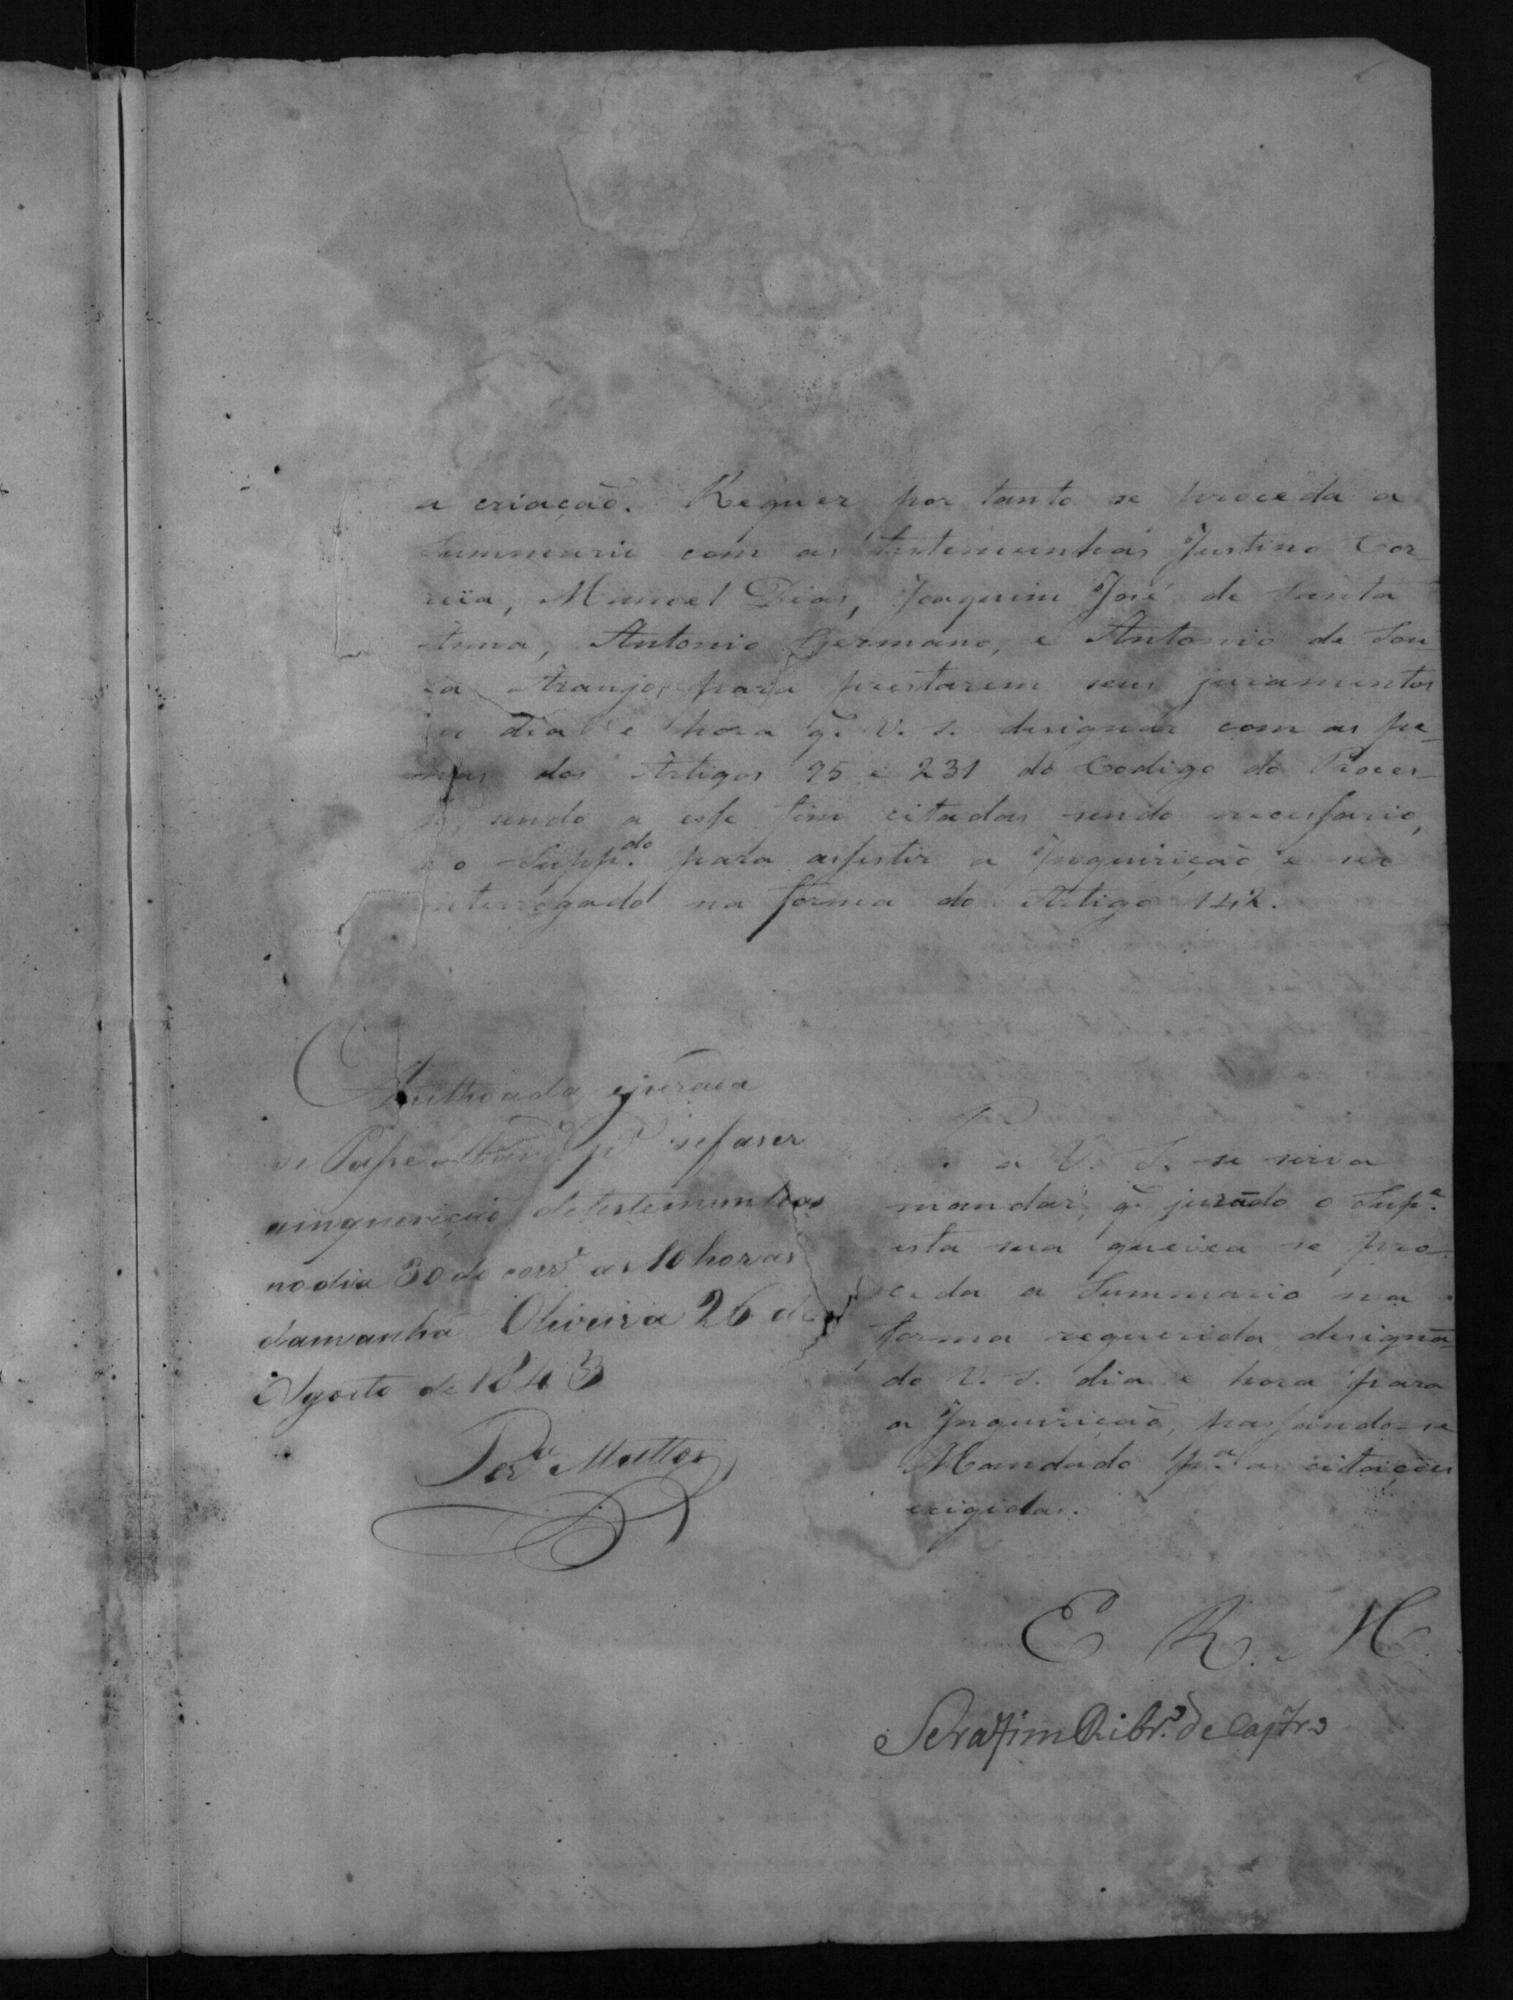 a criação. Requer por tanto se proceda a
Summario com as testemunhas Justino Cor-
reia, Manoel Dias, Joaquim José de Santa
Anna, Antonio Germano, e Antonio de Sou-
za Araujo, para prestarem seus juramentos
dia e hora q. V. S. designar com as pe-
nas dos Artigos 95 e 231 do Codigo do Proces-
sendo a esse fim citadas sendo necessario,
e o Supp.do para assistir a Inquirição e ser
interrogado na forma do Artigo 142.
Authoada ejurada
se Passe p.a sefaser
ainquerição detestemunhas
nodia 30 do corr.e as 10 horas
damanhã Oliveira 26 de
Agosto de 1843
Mattos
P.
a V. S. se sirva
mandar, q. jurado o Sup.e
esta sua queixa se pro-
ceda a Summario na
forma requerida designa-
do V. S. dia e hora para
a Inquirição, passando-se
Mandado p.a as citações
exigidas.
E R. M.
Serafim Ribr.o de Castro